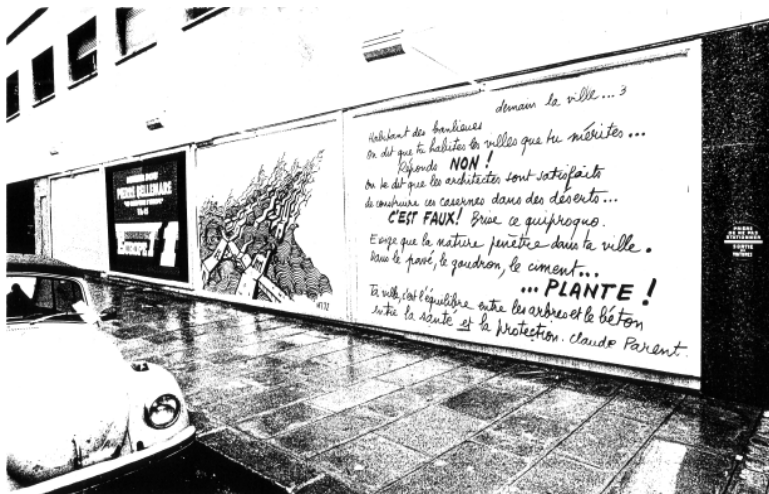 PIERRE BELLEMARE
demain la ville... 3
Habitant des banlieues
on dit que tu habites les villes que tu mérites...
Réponds NON !
On te dit que les architectes sont satisfaits
de construire ces casernes dans des déserts...
C'EST FAUX! Brise ce quiproquo.
Exige que la nature pénètre dans ta ville.
Dans le pavé, le goudron, le ciment...
... PLANTE !
Ta ville, c'est l'équilibre entre les arbres et le béton
entre la santé et la protection. Claude Parent.
PRIERE
DE NE PAS
STATIONNER
SORTIE
DE
VOITURES